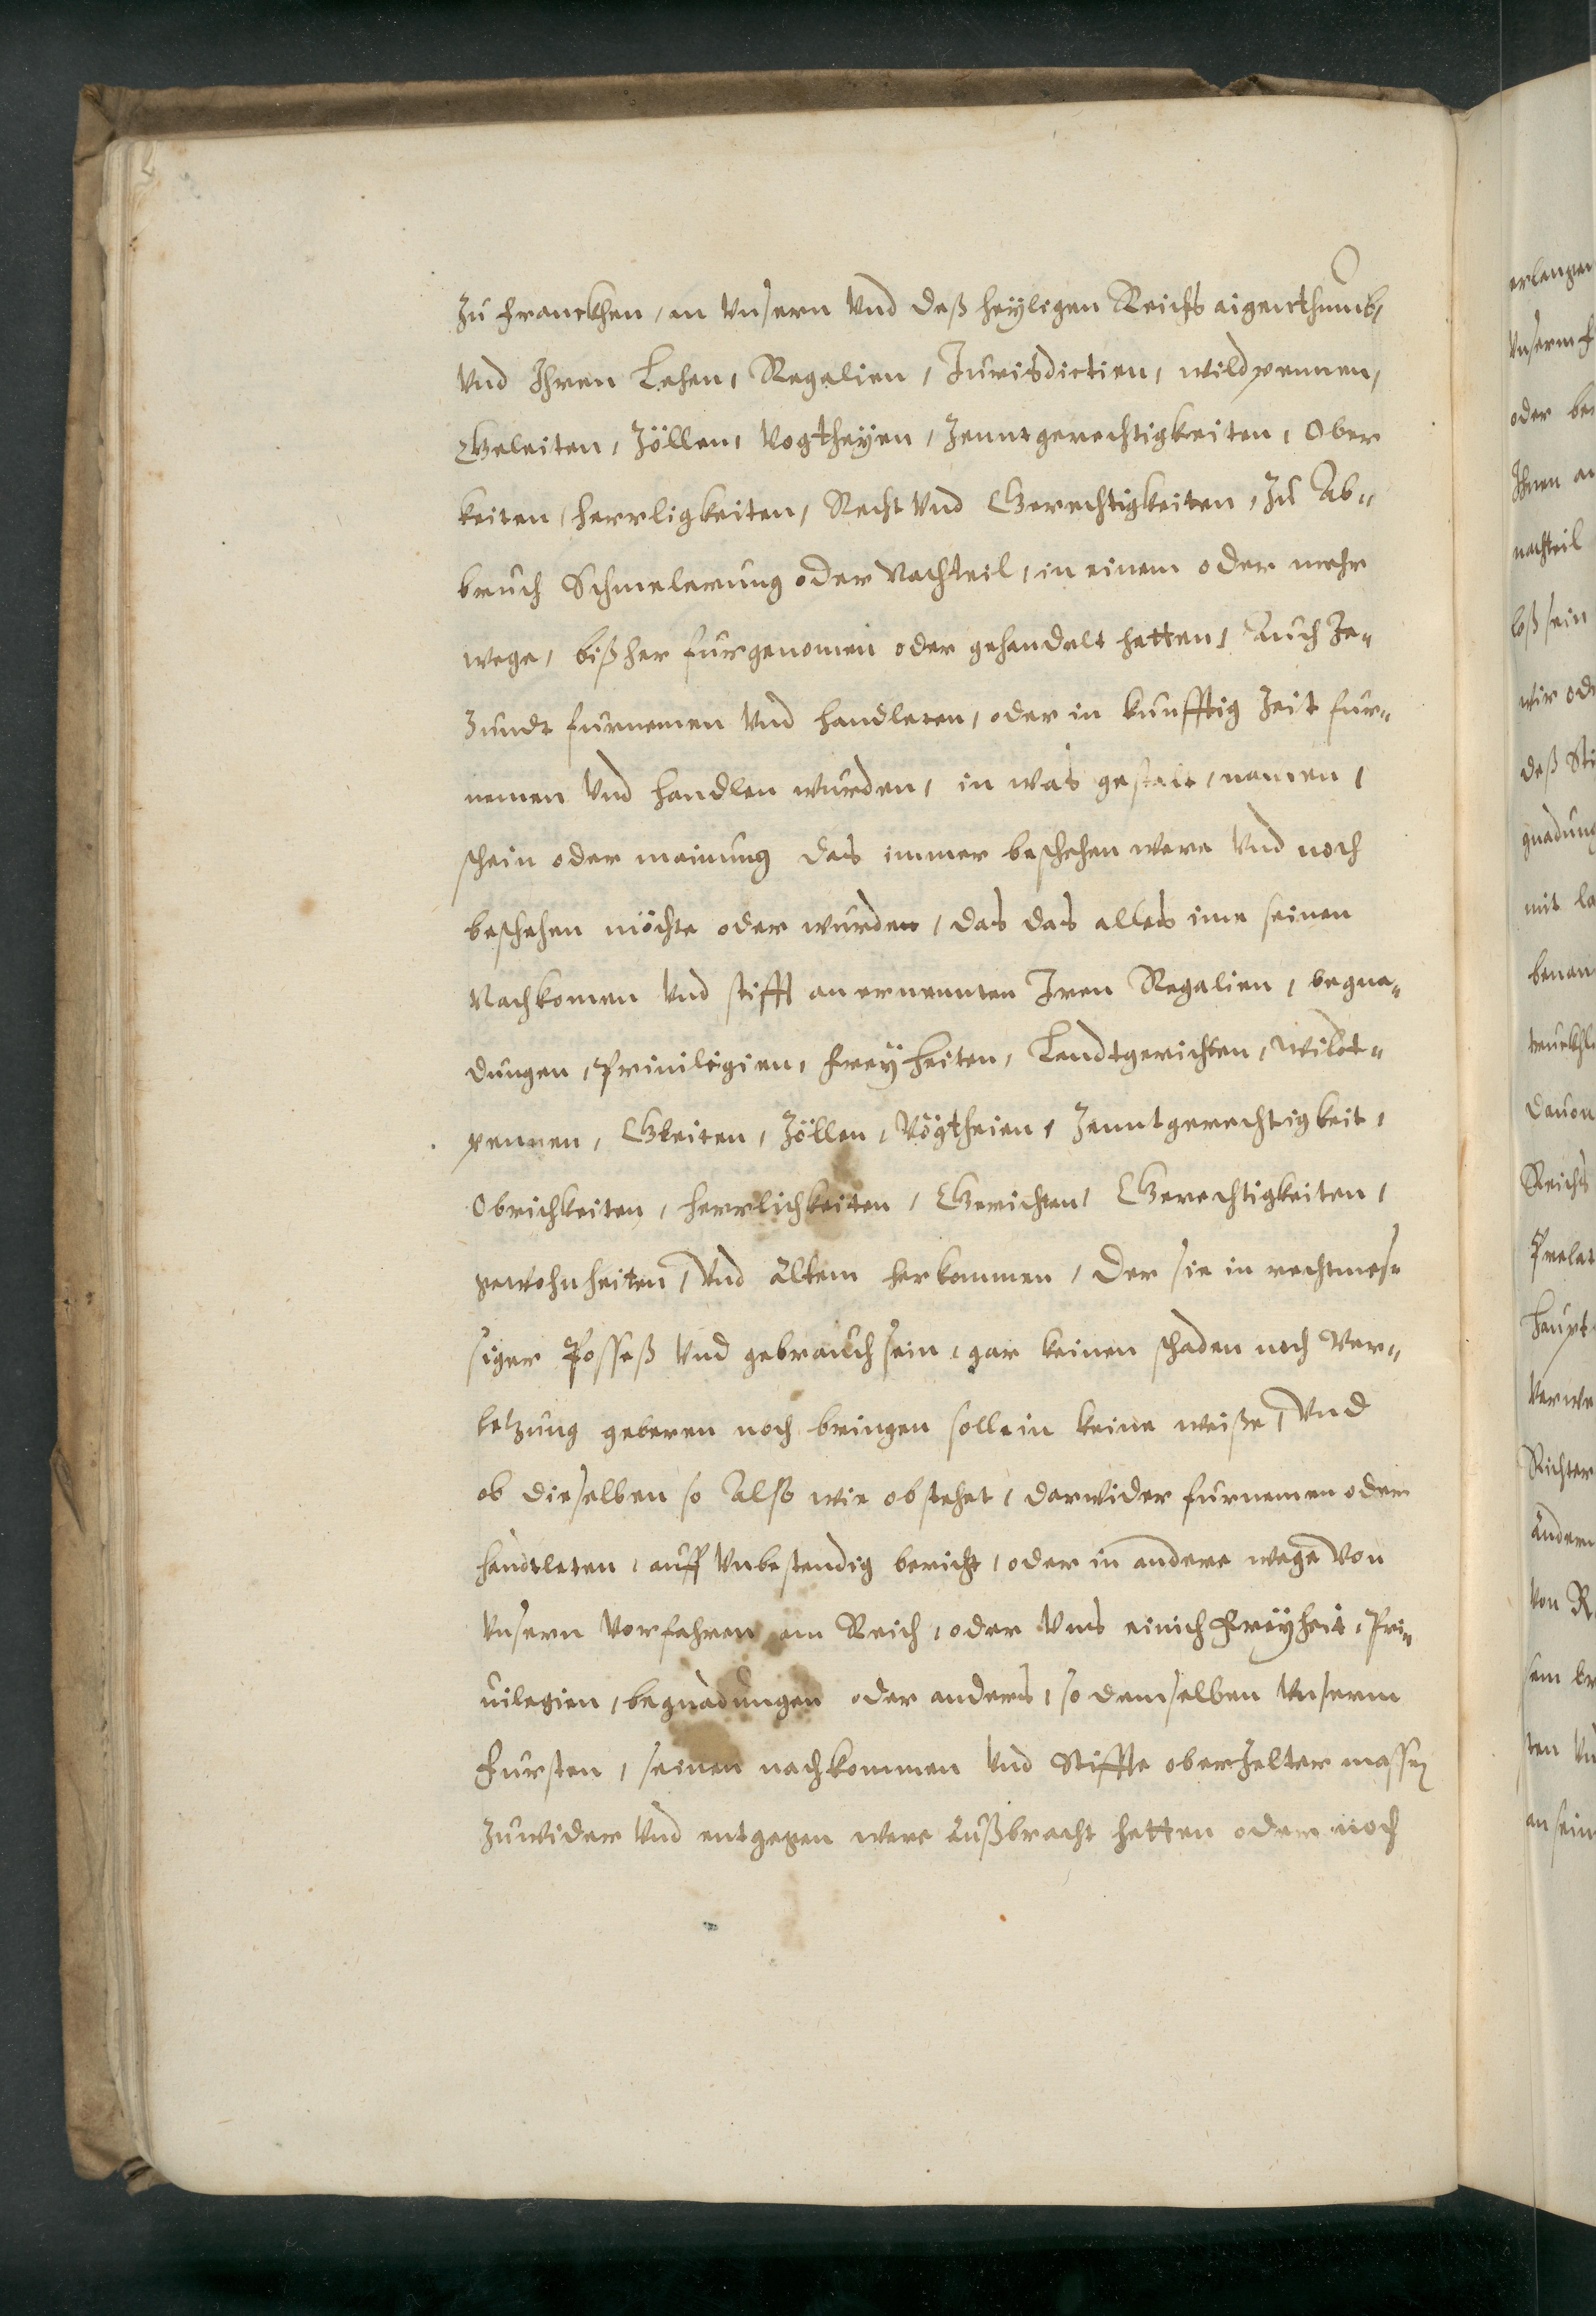 Zu Franckhen, an Vnsern Vnd deß heÿligen Reichs aigenthumb,
Vnd Ihren Lehen, Regalien, Jurisdictien, wildpennen,
Geleiten, Zöllen, Vogtheÿen, Zenntgerechtigkeiten, Ober
keiten, herrligkeiten, Recht Vnd Gerechtigkeiten, Zu Ab-
bruch Schmelerung oder Nachteil, in einem oder mehr
wege, bißher furgenomen oder gehandelt hetten, Auch Je-
Zundt furnemen Vnd handleten, oder in kunfftig Zeit fur-
nemen Vnd handlen wurden, in was gestalt, namen,
schein oder mainung das immer beschehen were Vnd noch
beschehen möchte oder wurden, das das alles ime seinen
Nachkomen Vnd stifft an ernennten Iren Regalien, begna-
dungen, Priuilegien, Freÿheiten, Landtgerichten, wildt-
pennen, Gleiten, Zöllen, Vögtheien, Zenntgerechtigkeit,
Obrichkeiten, herrlichkeiten, Gerichten, Gerechtigkeiten,
gewohnheiten, Vnd altem herkommen, der sie in rechtmes-
siger Posseß Vnd gebrauch sein, gar keinen schaden noch Ver-
letzung geberen noch bringen soll in keine weiße, Vnd
ob dieselben so Also wie obstehet, darwider furnemen oder
handleten, auff Vnbestendig bericht, oder in andere wege Von
Vnsern Vorfahren am Reich, oder Vns einich Freÿheit, Pri-
uilegien, begnadungen oder anders, so demselben Vnserm
Fursten, seinen nachkommen Vnd Stiffte oberzelter massen
zuwider Vnd entgegen were außbracht hetten oder noch